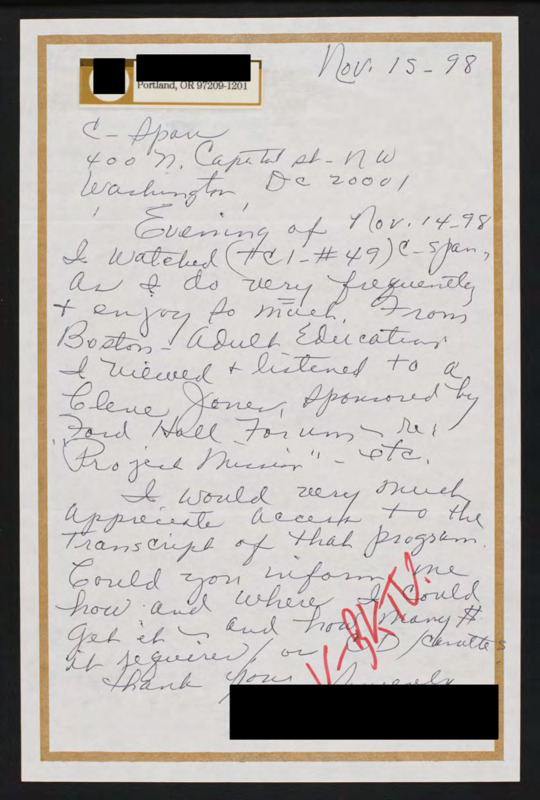 Nov. 15-98
Portland, OR 97209-1201
C-Span
400 N. Capital st-NW
Washington, DC 20001
Evening of Nov. 14-98
I watched (#C1-#49) C-Span,
as I do very frequently
+ enjoy so much. From
Boston-Adult Education
I viewed + listened to a
Cleve Jones, sponsored by
Ford Hall Forum - re:
"Project Mission" - etc.
I would very much
appreciate access to the
transcript of that program.
Could you inform me
how and where I could
get it - and how many $
it requires/ or CD/cassettes
Thank you Sincerely
V-BKTV?